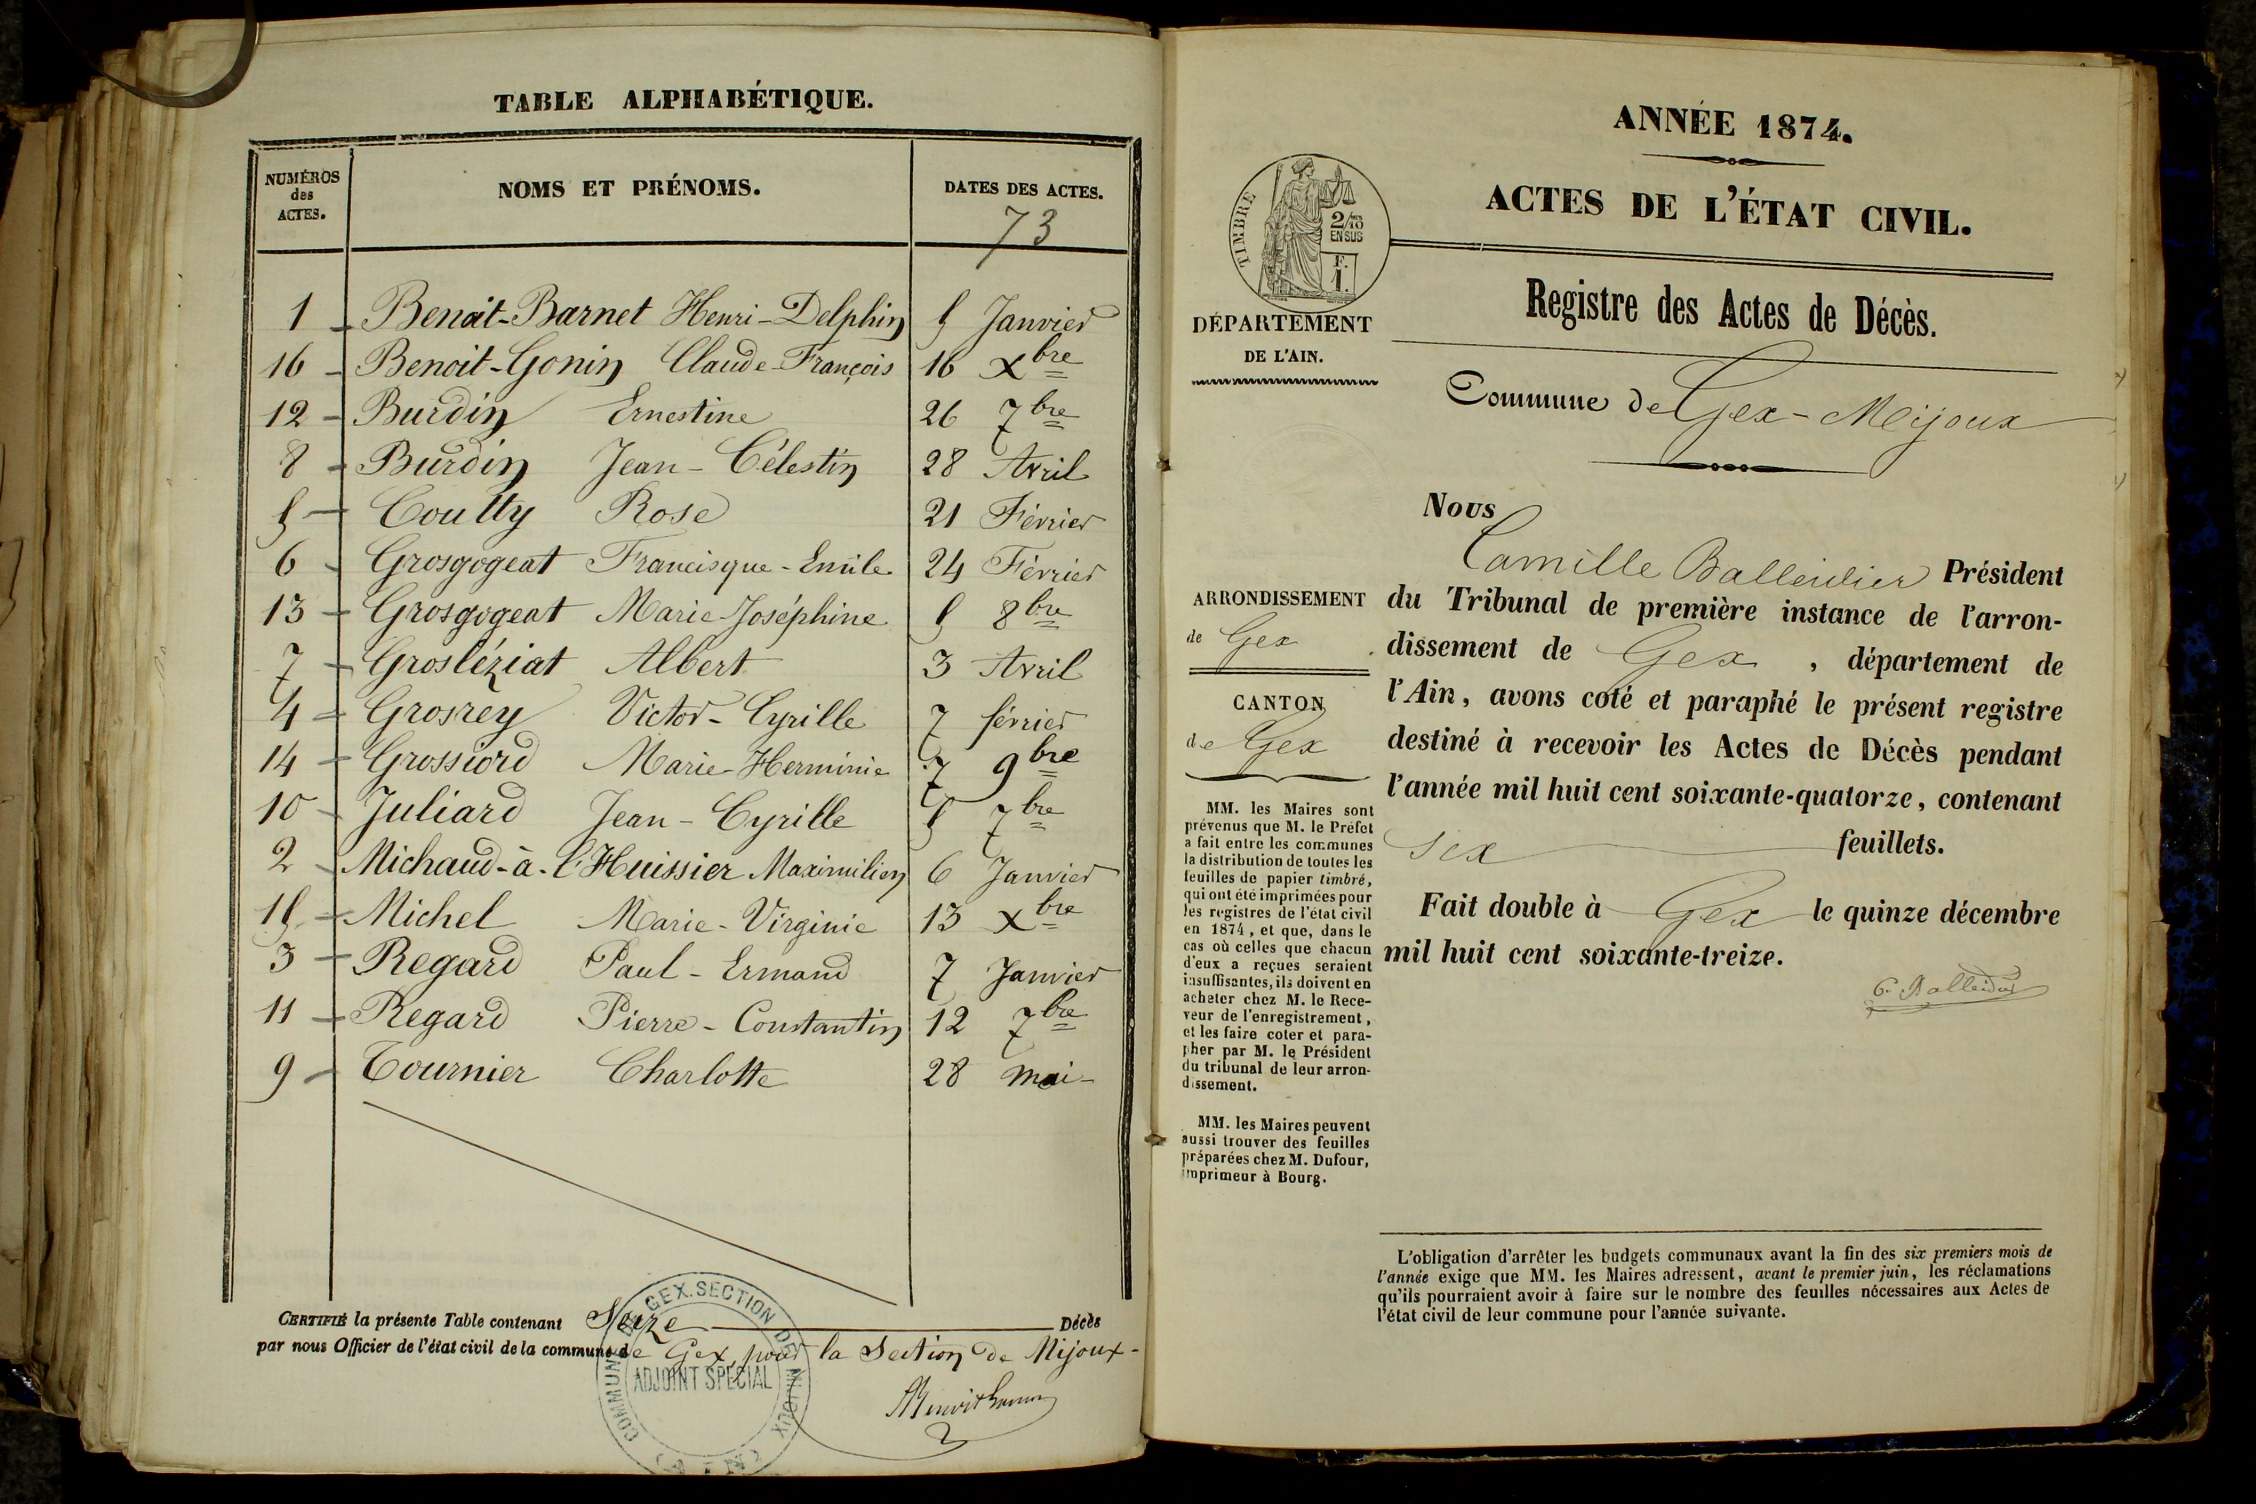 TABLE ALPHABÉTIQUE.
NUMÉROS des ACTES. NOMS ET PRÉNOMS. DATES DES ACTES.
73
1 Benoit-Barnet Henri-Delphin 5 Janvier
16 Benoit-Gonin Claude-François 16 Xbre
12 Burdin Ernestine 26 7bre
8 Burdin Jean-Célestin 28 Avril
5 Coutty Rose 21 Février
6 Grosgogeat Francisque-Emile 24 Février
13 Grosgogeat Marie-Joséphine 5 8bre
7 Grosléziat Albert 3 Avril
4 Grosrey Victor-Cyrille 7 février
14 Grossiord Marie-Herminie 7 9bre
10 Juliard Jean-Cyrille 5 7bre
2 Michaud-à-l'Huissier Maximilien 6 Janvier
15 Michel Marie-Virginie 13 Xbre
3 Regard Paul-Ermand 7 Janvier
11 Regard Pierre-Constantin 12 7bre
9 Tournier Charlotte 28 mai
CERTIFIÉ la présente Table contenant Seize Décès
par nous Officier de l'état civil de la commune de Gex, pour la Section de Mijoux-
COMMUNE DE GEX. SECTION DE MIJOUX
ADJOINT SPÉCIAL
(AIN)
ANNÉE 1874.
ACTES DE L'ÉTAT CIVIL.
TIMBRE
2/10
EN SUS
F.
1.
DÉPARTEMENT
DE L'AIN.
Registre des Actes de Décès.
Commune de Gex-Mijoux
ARRONDISSEMENT
de Gex
CANTON
de Gex
MM. les Maires sont
prévenus que M. le Préfet
a fait entre les communes
la distribution de toutes les
feuilles de papier timbré,
qui ont été imprimées pour
les registres de l'état civil
en 1874, et que, dans le
cas où celles que chacun
d'eux a reçues seraient
insuffisantes, ils doivent en
acheter chez M. le Rece-
veur de l'enregistrement,
et les faire coter et para-
pher par M. le Président
du tribunal de leur arron-
dissement.
MM. les Maires peuvent
aussi trouver des feuilles
préparées chez M. Dufour,
imprimeur à Bourg.
Nous
Camille Balleidier Président
du Tribunal de première instance de l'arron-
dissement de Gex, département de
l'Ain, avons coté et paraphé le présent registre
destiné à recevoir les Actes de Décès pendant
l'année mil huit cent soixante-quatorze, contenant
six feuillets.
Fait double à Gex le quinze décembre
mil huit cent soixante-treize.
C. Balleidier
L'obligation d'arrêter les budgets communaux avant la fin des six premiers mois de
l'année exige que MM. les Maires adressent, avant le premier juin, les réclamations
qu'ils pourraient avoir à faire sur le nombre des feuilles nécessaires aux Actes de
l'état civil de leur commune pour l'année suivante.